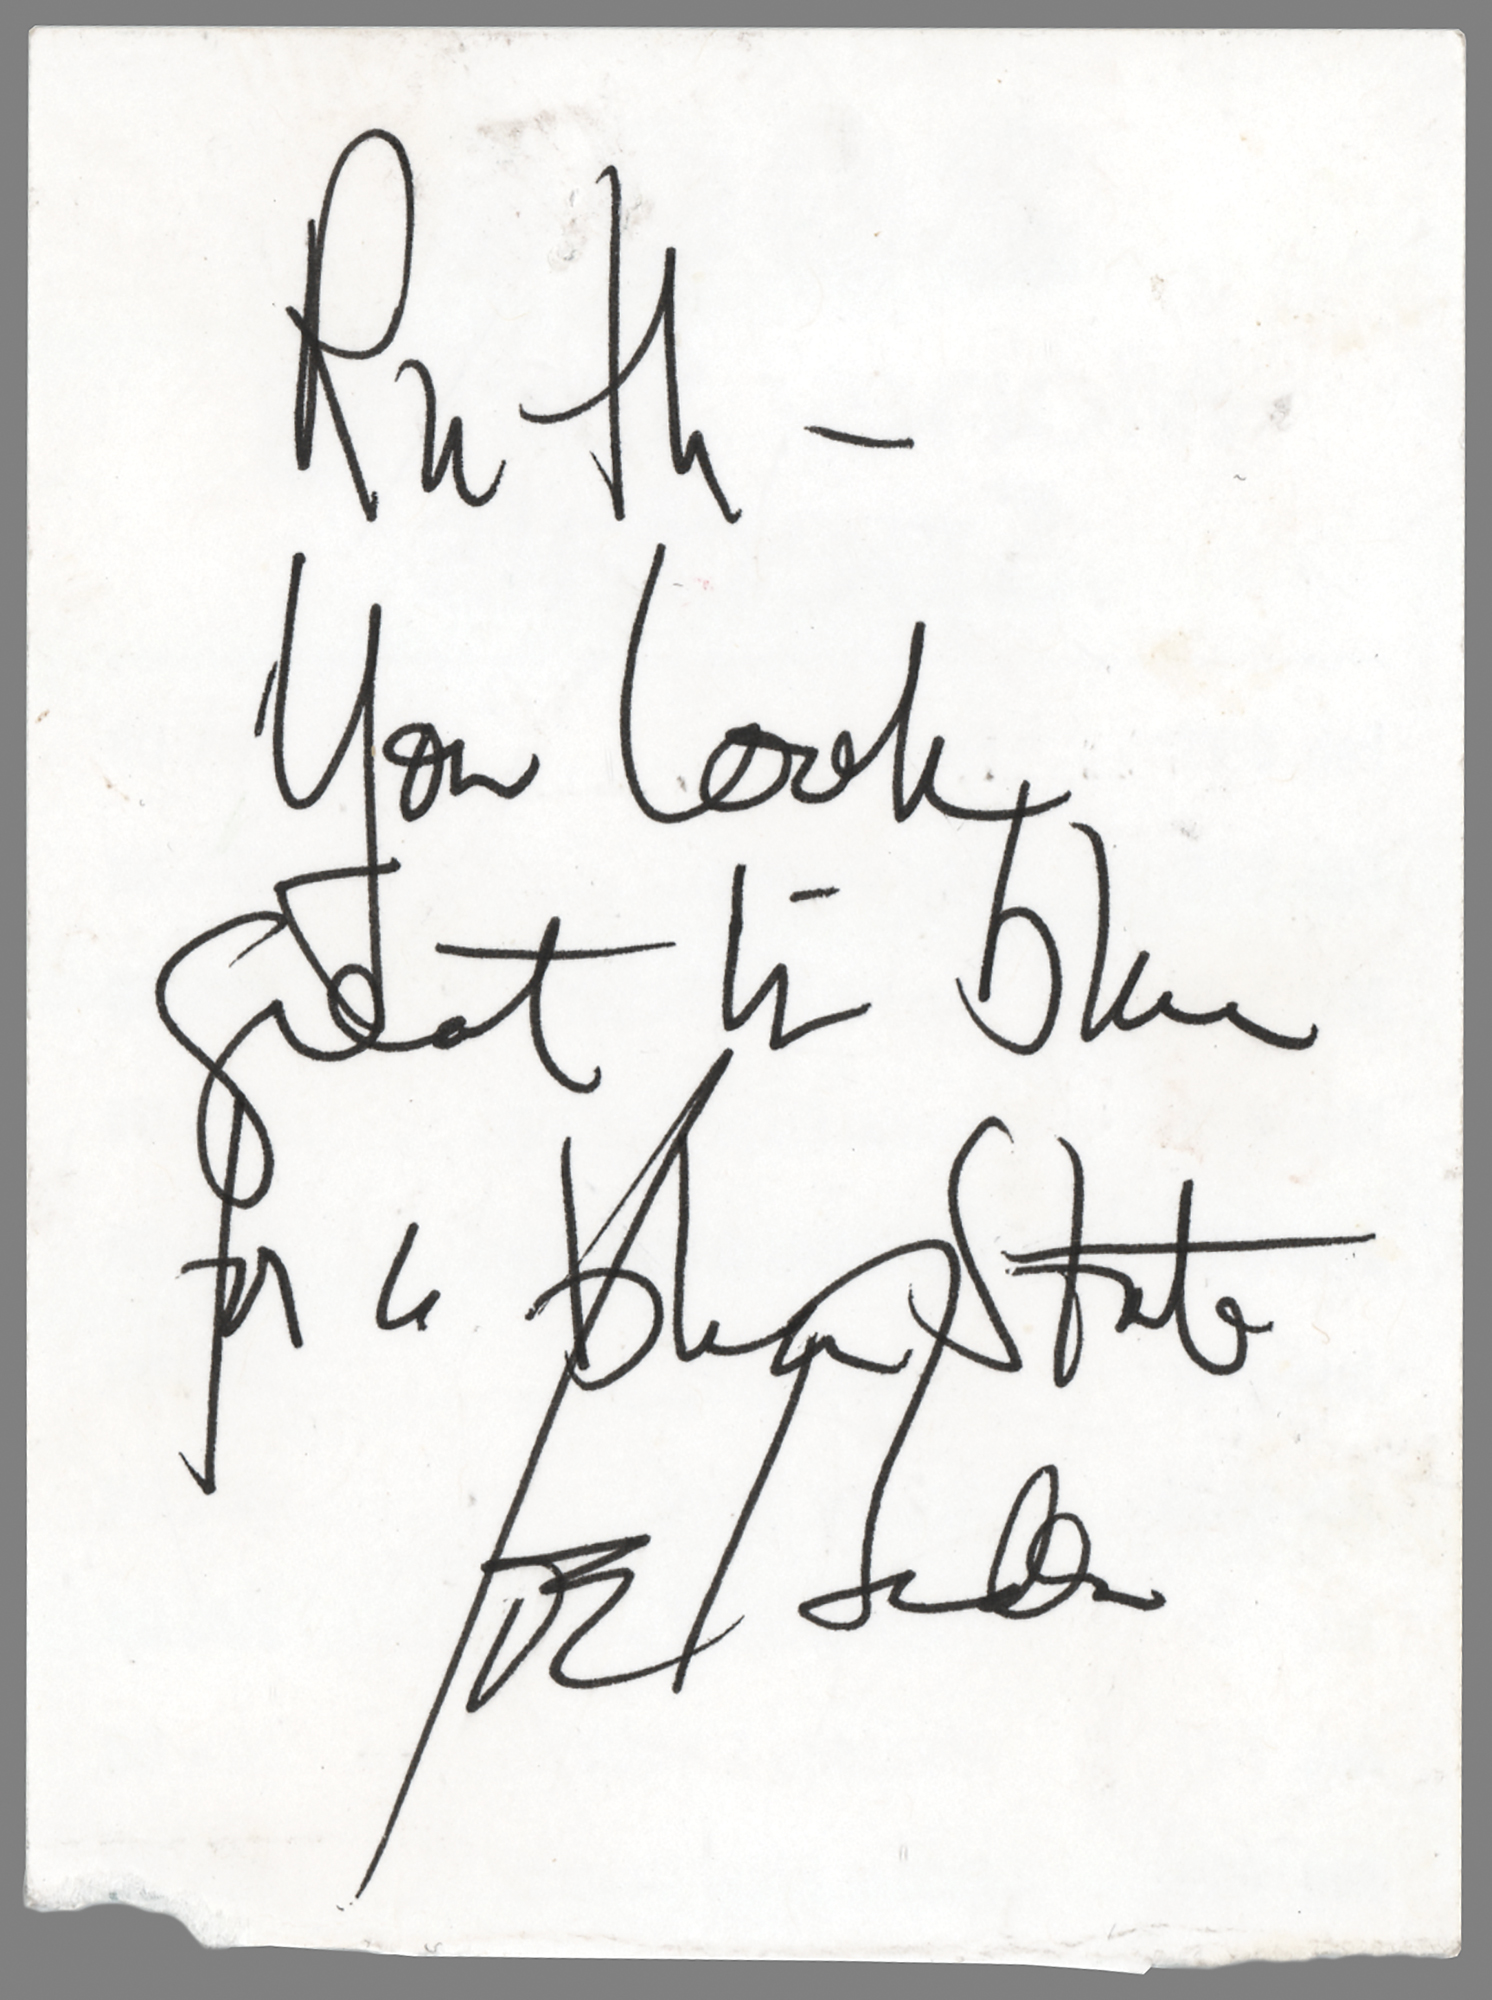 Ruth –
You look
great in blue
for a blue State
Joe